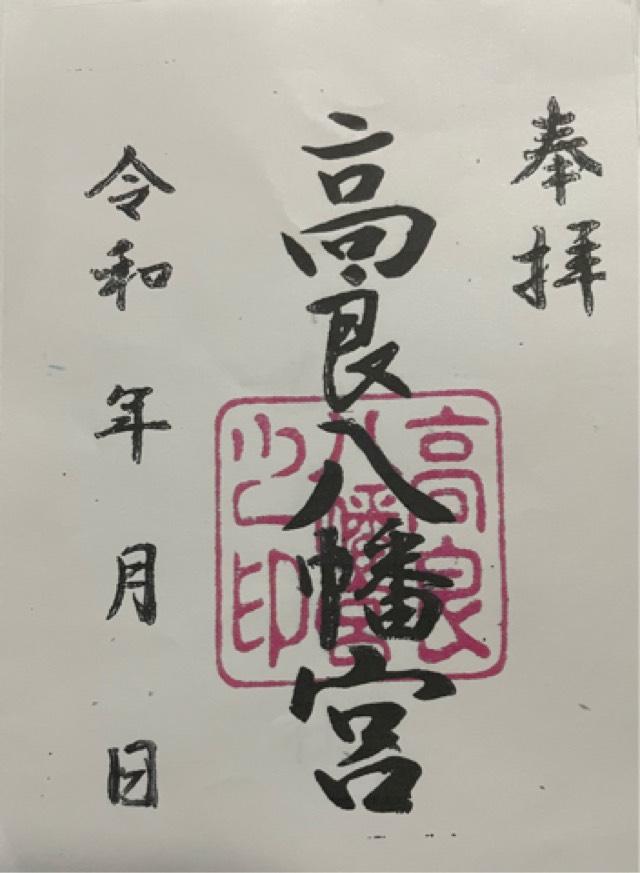 奉拝
高良八幡宮
高良八幡宮之印
令和 年 月 日